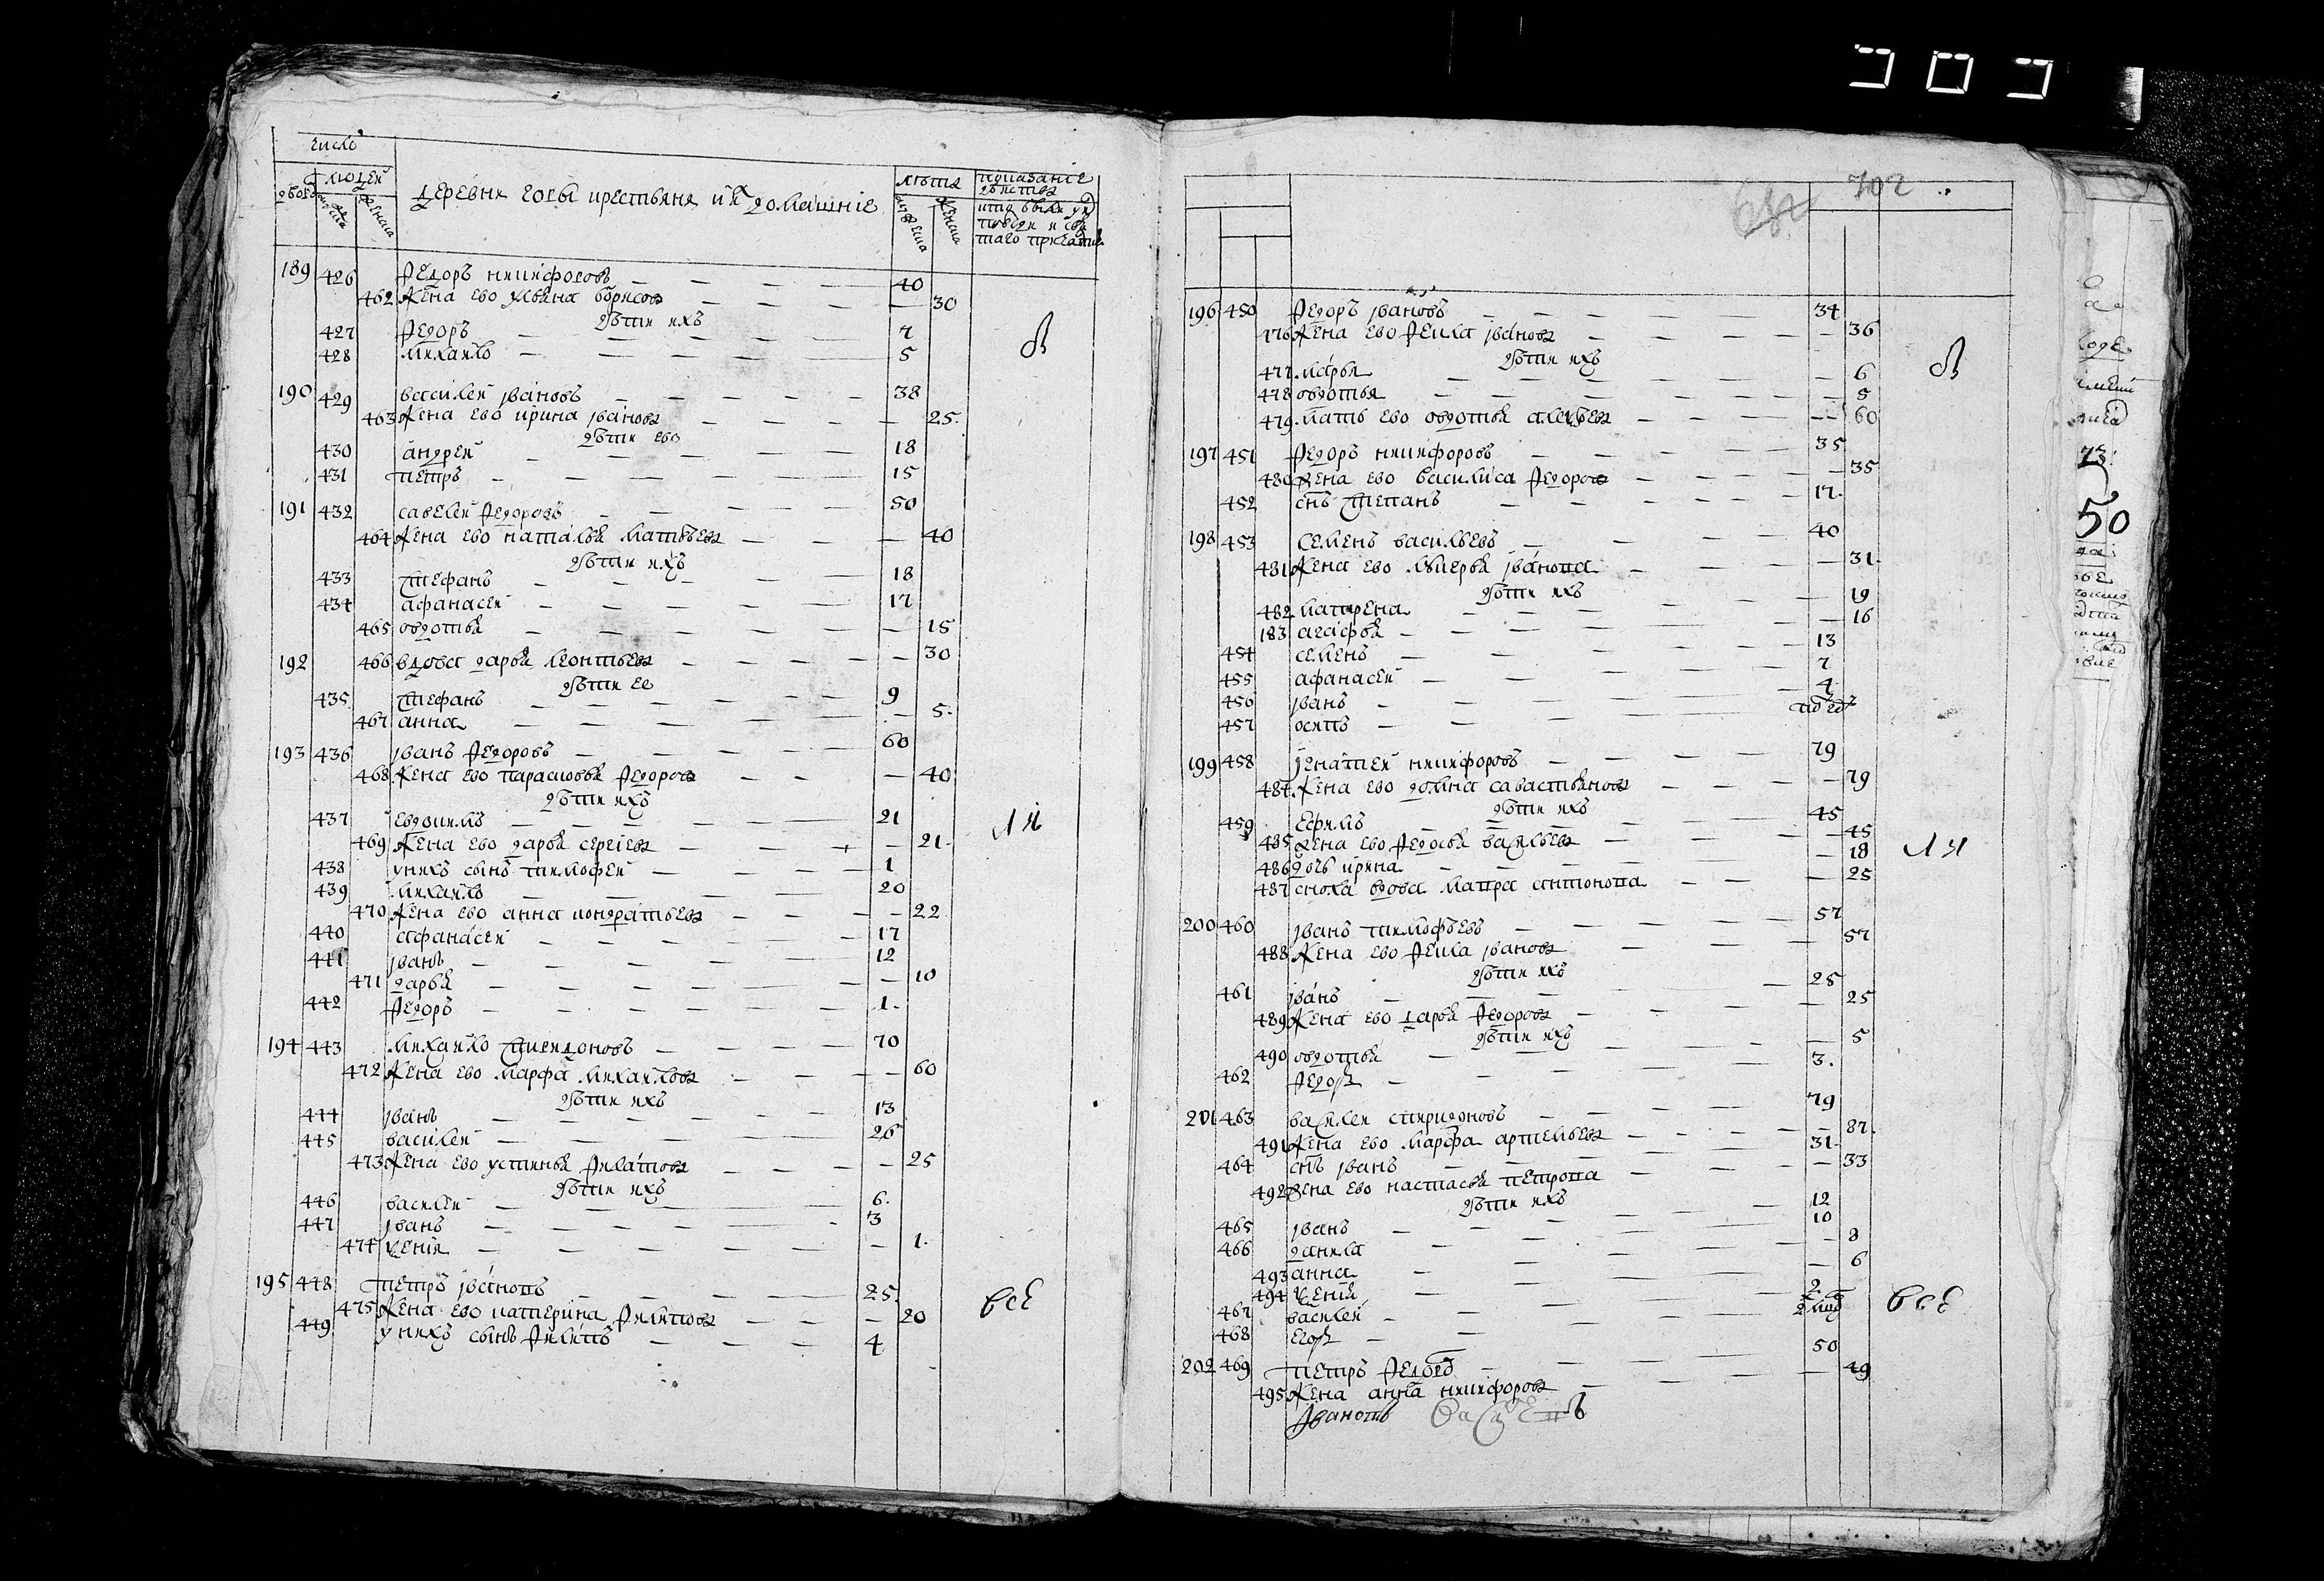 число
дворов людей
мужеска женска
деревни горы крестьяня и их домашние
лета
мужеска женска
показание действа
кто были у исповеди и святаго причастия
189 426 Федоръ никифоровъ 40
462 жена ево ульяна борисова 30
дѣти ихъ
427 Федоръ 7
428 михайло 5
190 429 василей ивановъ 38
463 жена ево ирина иванова 25
дѣти ево
430 андрей 18
431 петръ 15
191 432 савелей Федоровъ 50
464 жена ево наталья матвѣева 40
дѣти ихъ
433 стефанъ 18
434 афанасей 17
465 овдотья 15
192 466 вдова дарья леонтьева 30
дѣти ее
435 стефанъ 9
467 анна 5
193 436 иванъ Федоровъ 60
468 жена ево парасковья Федорова 40
дѣти ихъ
437 евдокимъ 21
469 жена ево дарья сергіева 21
438 у нихъ сынъ тимофей 1
439 михайло 20
470 жена ево анна кондратьева 22
440 афанасей 17
441 иванъ 12
471 дарья 10
442 Федоръ 1
194 443 михайло спиридоновъ 70
472 жена ево марфа михайлова 60
дѣти ихъ
444 иванъ 13
445 василей 26
473 жена ево устинья Филатова 25
дѣти ихъ
446 василей 6
447 иванъ 3
474 ксенія 1
195 448 петръ ивановъ 25
475 жена ево катерина Филипова 20
449 у нихъ сынъ Филипъ 4
в
ли
все
702
196 450 Федоръ ивановъ 34
176 жена ево Фекла иванова 36
дѣти ихъ
477 марья 6
478 овдотья 5
479 мать ево овдотья алексѣева 60
197 451 Федоръ никифоровъ 35
480 жена ево василиса Федорова 35
452 снъ степанъ 17
198 453 семенъ васильевъ 40
481 жена ево лукерья иванова 31
дѣти ихъ
482 матрена 19
183 агафья 16
454 семенъ 13
455 афанасей 7
456 иванъ 4
457 осипъ
199 458 игнатей никифоровъ 79
484 жена ево домна савастьянова 79
дѣти ихъ
459 ефимъ 45
485 жена ево Федосья васильева 45
486 дочь ирина 18
487 сноха вдова матра антонова 25
200 460 иванъ тимофѣевъ 57
488 жена ево Фекла иванова 57
дѣти ихъ
461 иванъ 25
489 жена ево дарья Федорова 25
дѣти ихъ
490 овдотья 5
462 Федоръ 3
201 463 василей спиридоновъ 79
491 жена ево марфа артемьева 87
464 снъ иванъ 31
492 жена ево настасья петрова 33
дѣти ихъ
465 иванъ 12
466 данила 10
493 анна 8
494 ксенія 6
467 василей 2
468 егоръ
202 469 петръ Федоров 50
495 жена анна никифорова 49
Ивановъ
в
ли
все
50